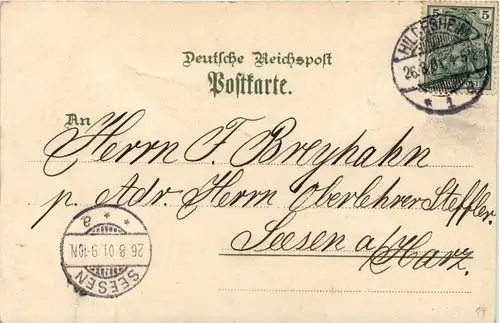 5 5
HILDESHEIM
26.8.01. 4-5N.
* 1 a.
Deutsche Reichspost
Postkarte.
An
Herrn F. Breyhahn
p. Adr. Herrn Oberlehrer Steffler.
Seesen a/Harz.
SEESEN
26.8.01. 9-10N.
* * a
14